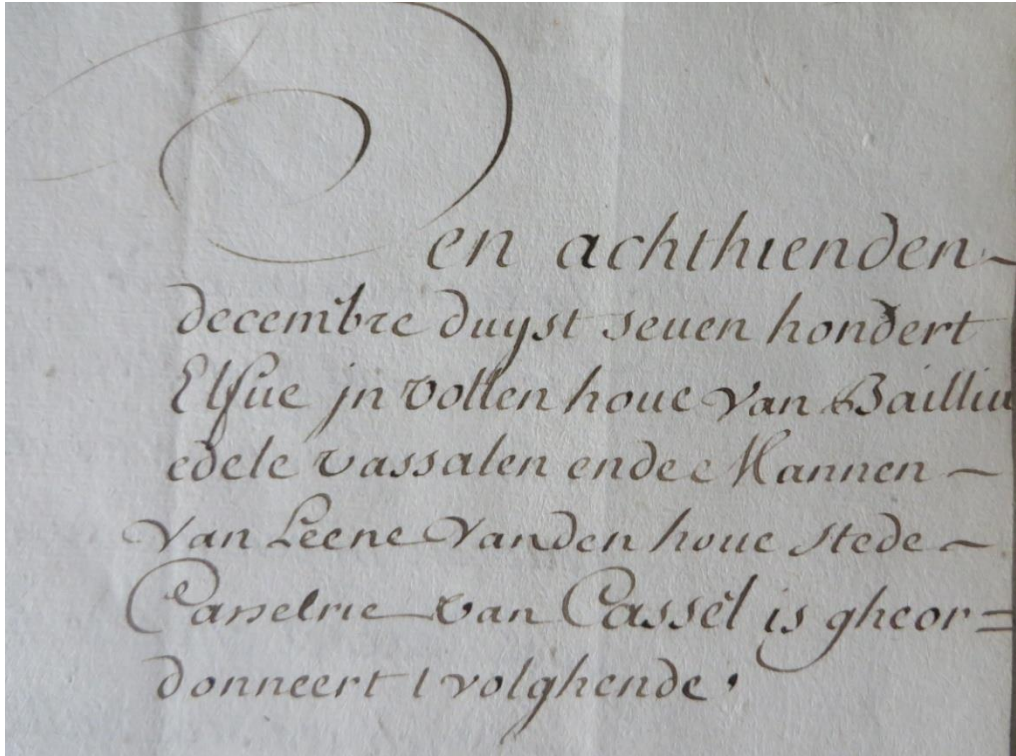 Den achthienden
decembre duyst seuen hondert
Elfue jn vollen houe van Bailliu
edele vassalen ende Mannen
van Leene vanden houe stede
Casselrie van Cassel is gheor=
donneert t volghende.